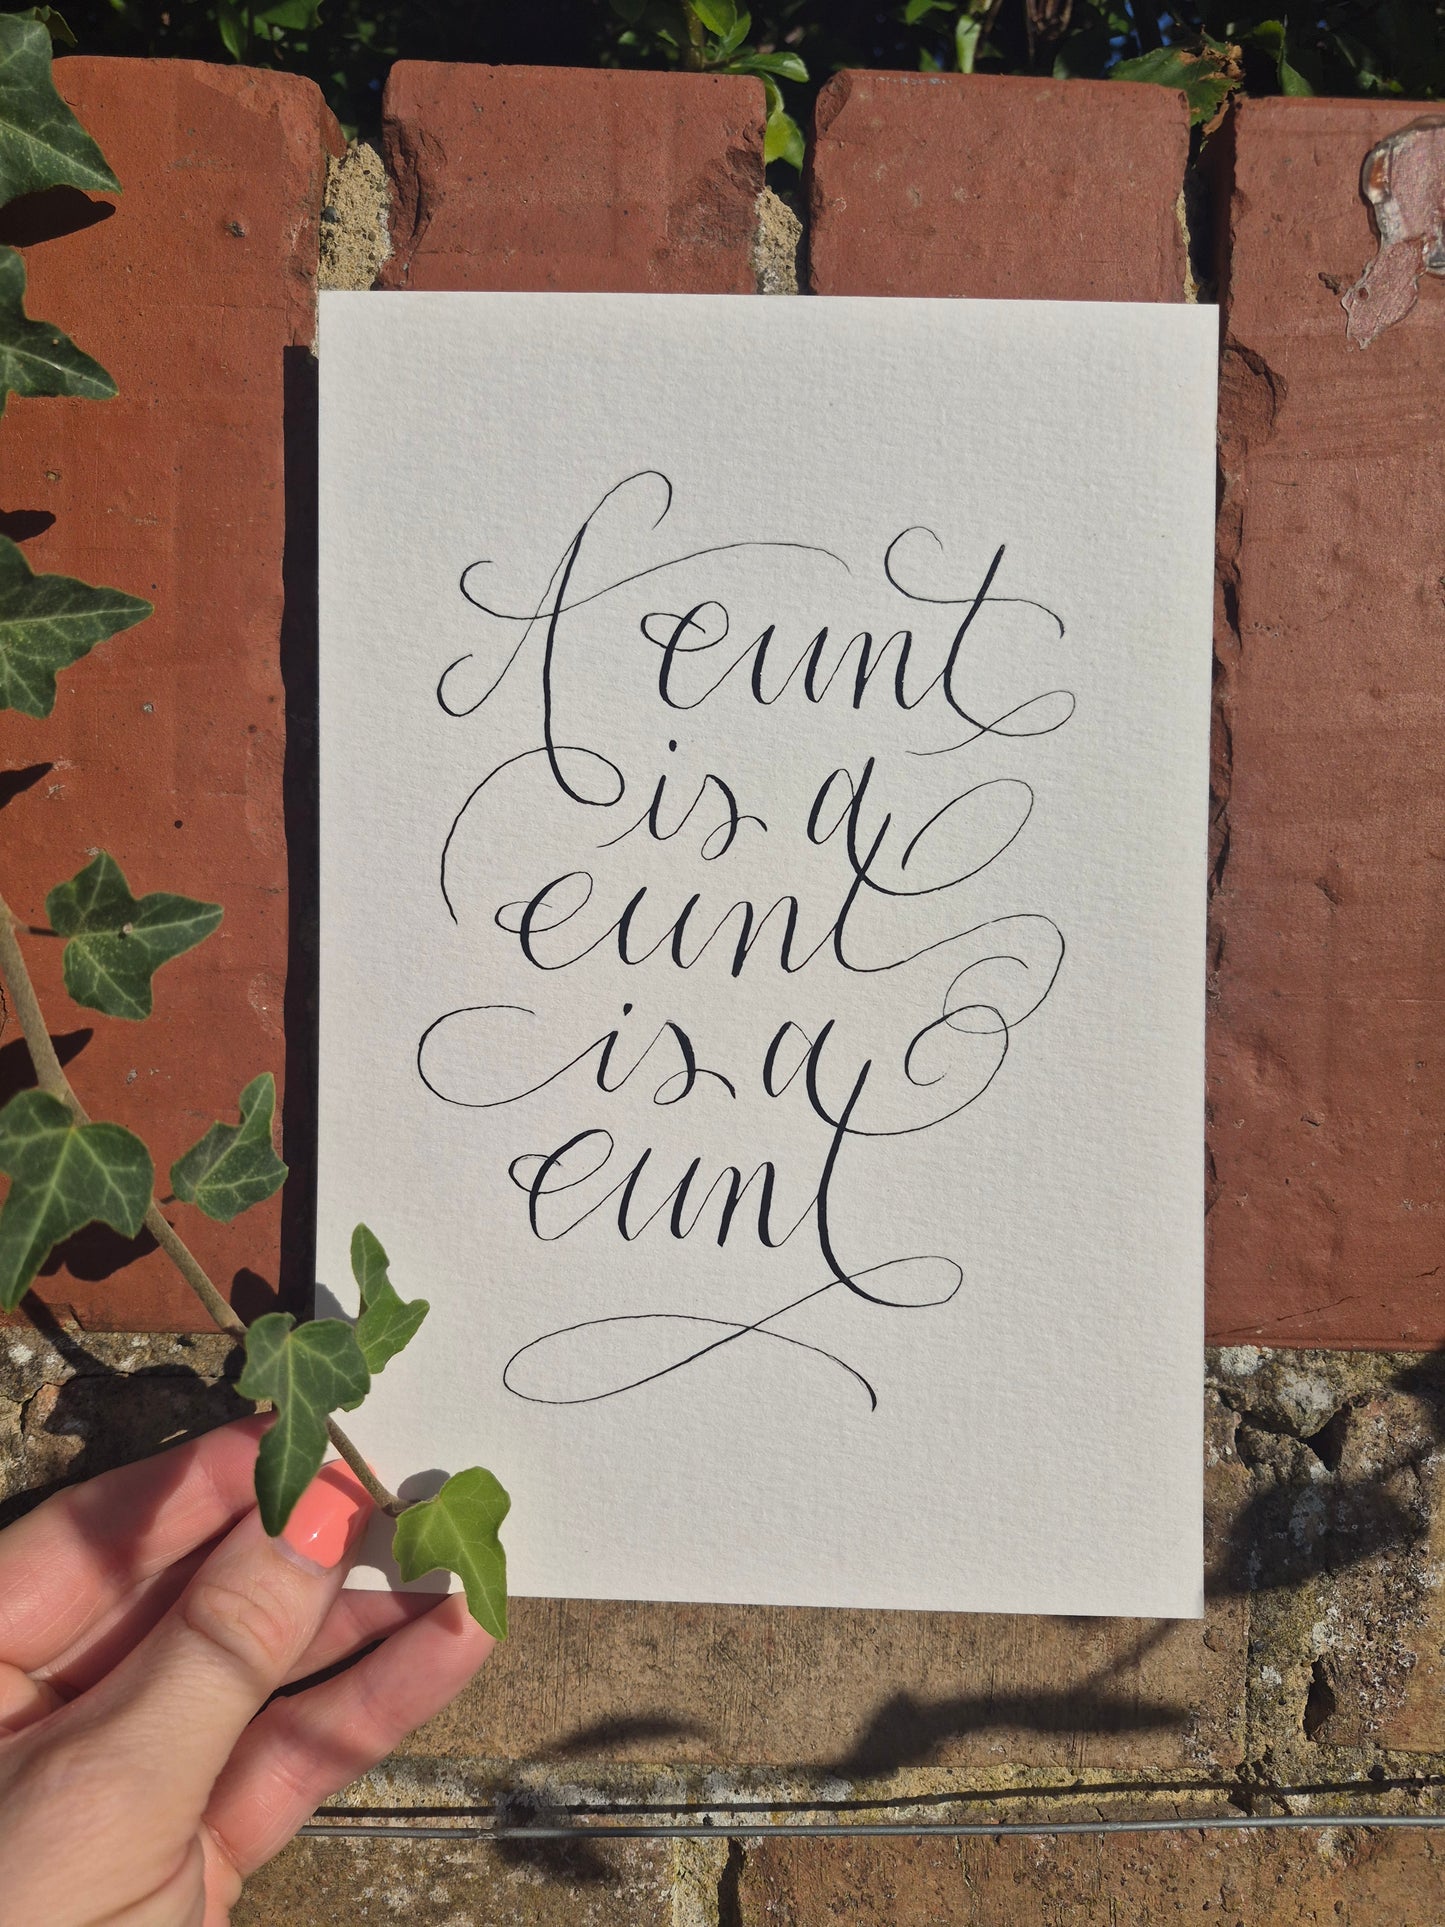 A cunt
is a
cunt
is a
cunt